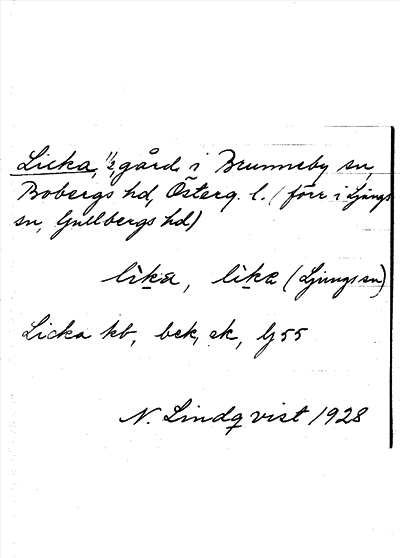 Licka, 1/2 gård i Brunneby sn,
Bobergs hd, Österg. l. (förr i Ljungs
sn, Gullbergs hd)
lika, like (Ljungs sn)
Licka kb, bek, ek, lj 55
N. Lindqvist 1928